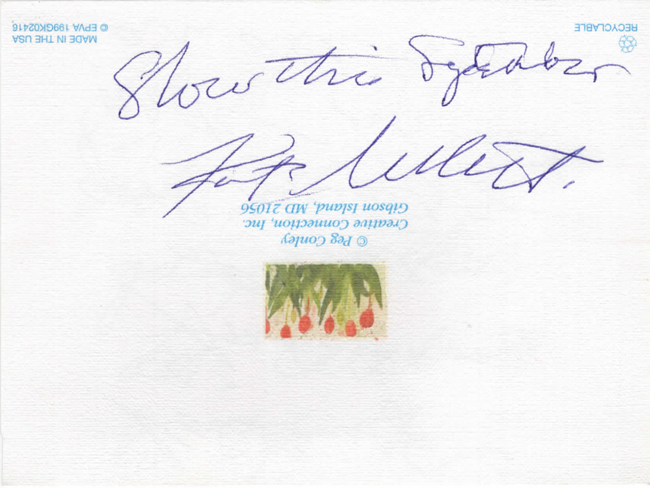 this
Kate Millett.
© Peg Conley
Creative Connection, Inc.
Gibson Island, MD 21056
RECYCLABLE
© EPVA 199GK02416
MADE IN THE USA